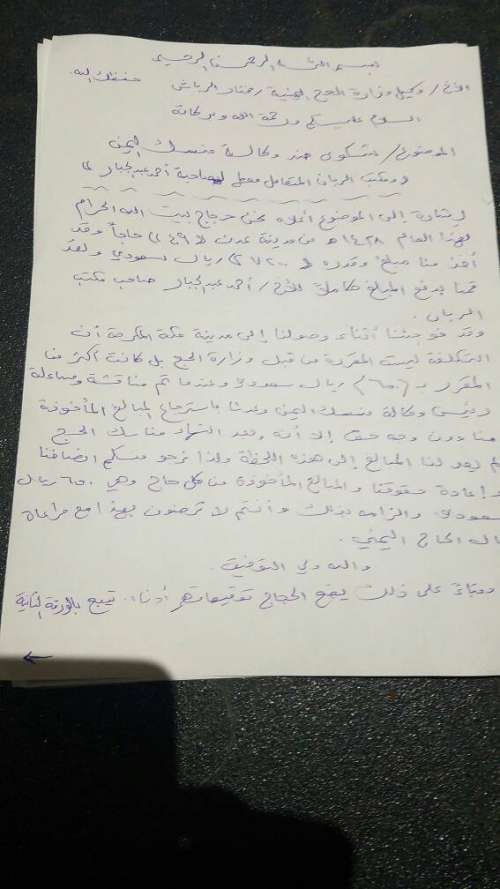 بسم الله الرحمن الرحيم
الأخ / وكيل وزارة الحج اليمنية / مختار الرباش حفظك الله
السلام عليكم ورحمة الله وبركاته
الموضوع / شكوى ضد وكالة منسك اليمن
ومكتب الريان المتعامل معها لصاحبه أحمد عبدالجبار
إشارة إلى الموضوع أعلاه نحن حجاج بيت الله الحرام
لهذا العام ١٤٣٨هـ من مدينة عدن (٤٩) حاجاً وقد
أخذ منا مبلغ وقدره (٧٢٠٠) ريال سعودي وقد
قمنا بدفع المبلغ كاملة للأخ / أحمد عبدالجبار صاحب مكتب
الريان.
وقد فوجئنا أثناء وصولنا إلى مدينة مكة المكرمة أن
التكلفة ليست المقررة من قبل وزارة الحج بل كانت أكثر من
المقرر بـ (٦٥٠) ريال سعودي وعندما تم مناقشة ومساءلة
رئيس وكالة منسك اليمن وعدنا باسترجاع المبالغ المأخوذة
منا دون وجه حق إلا أنه وبعد انتهاء مناسك الحج
لم يعد لنا المبالغ إلى هذه اللحظة ولذا نرجو منكم انصافنا
وإعادة حقوقنا والمبالغ المأخوذة من كل حاج وهي ٦٥٠ ريال
سعودي والزامه بذلك وأنتم لا ترضون بهذا مع مراعاة
حال الحاج اليمني.
والله ولي التوفيق.
وبناءً على ذلك يضع الحجاج توقيعاتهم أدناه. تتبع بالورقة الثانية
←